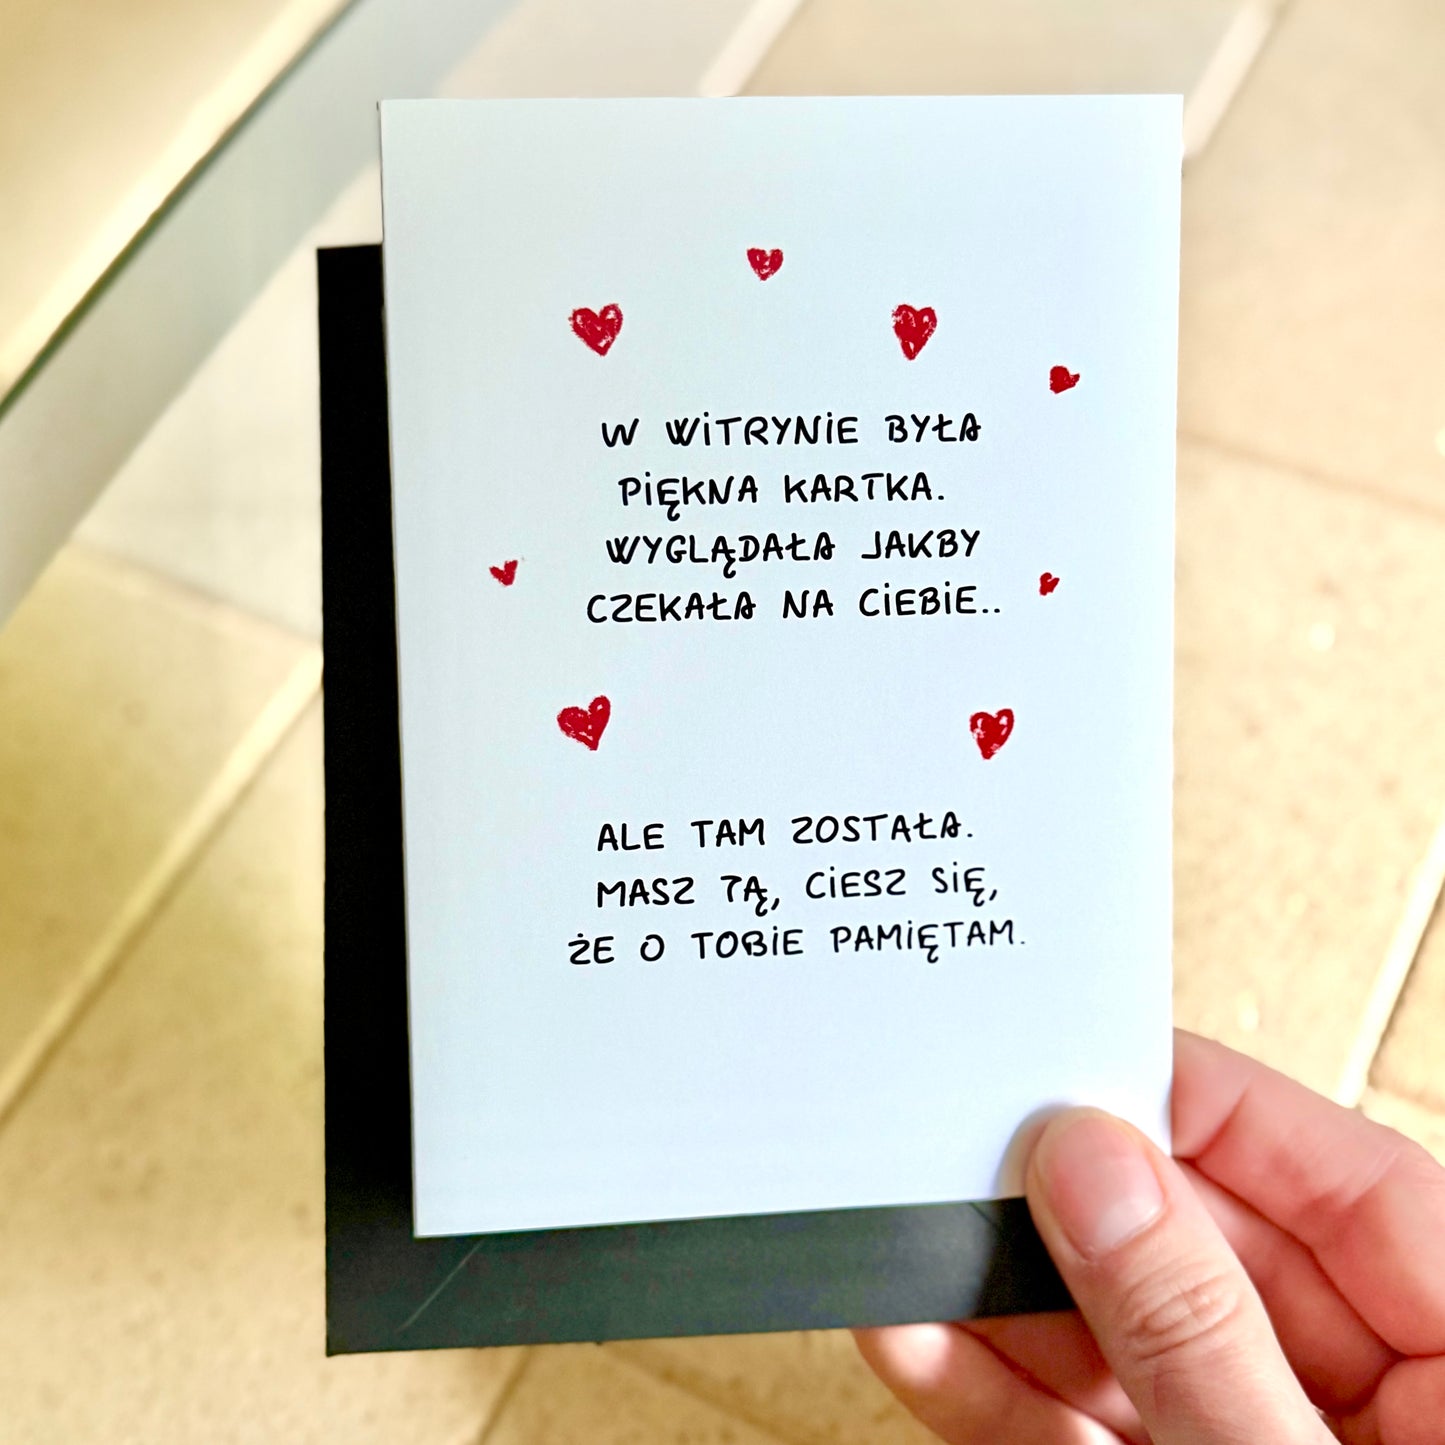 W WITRYNIE BYŁA
PIĘKNA KARTKA.
WYGLĄDAŁA JAKBY
CZEKAŁA NA CIEBIE..
ALE TAM ZOSTAŁA.
MASZ TĄ, CIESZ SIĘ,
ŻE O TOBIE PAMIĘTAM.